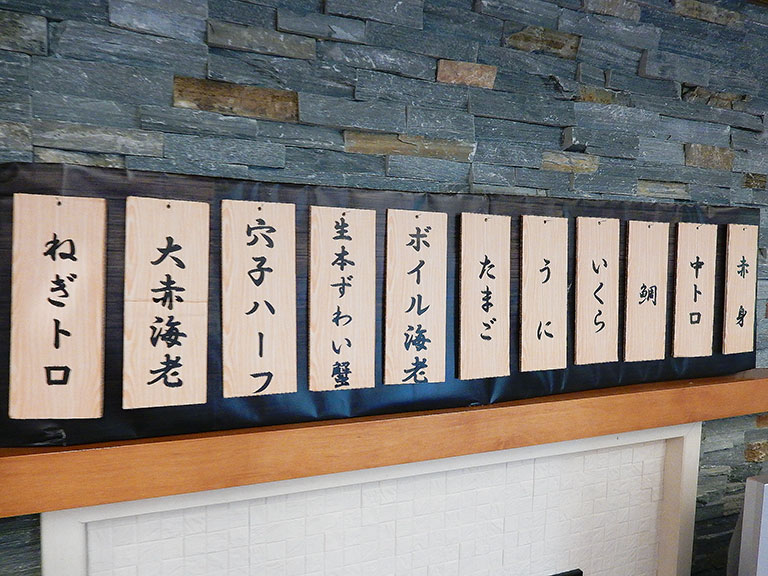 赤身
中トロ
鯛
いくら
うに
たまご
ボイル海老
生本ずわい蟹
穴子ハーフ
大赤海老
ねぎトロ